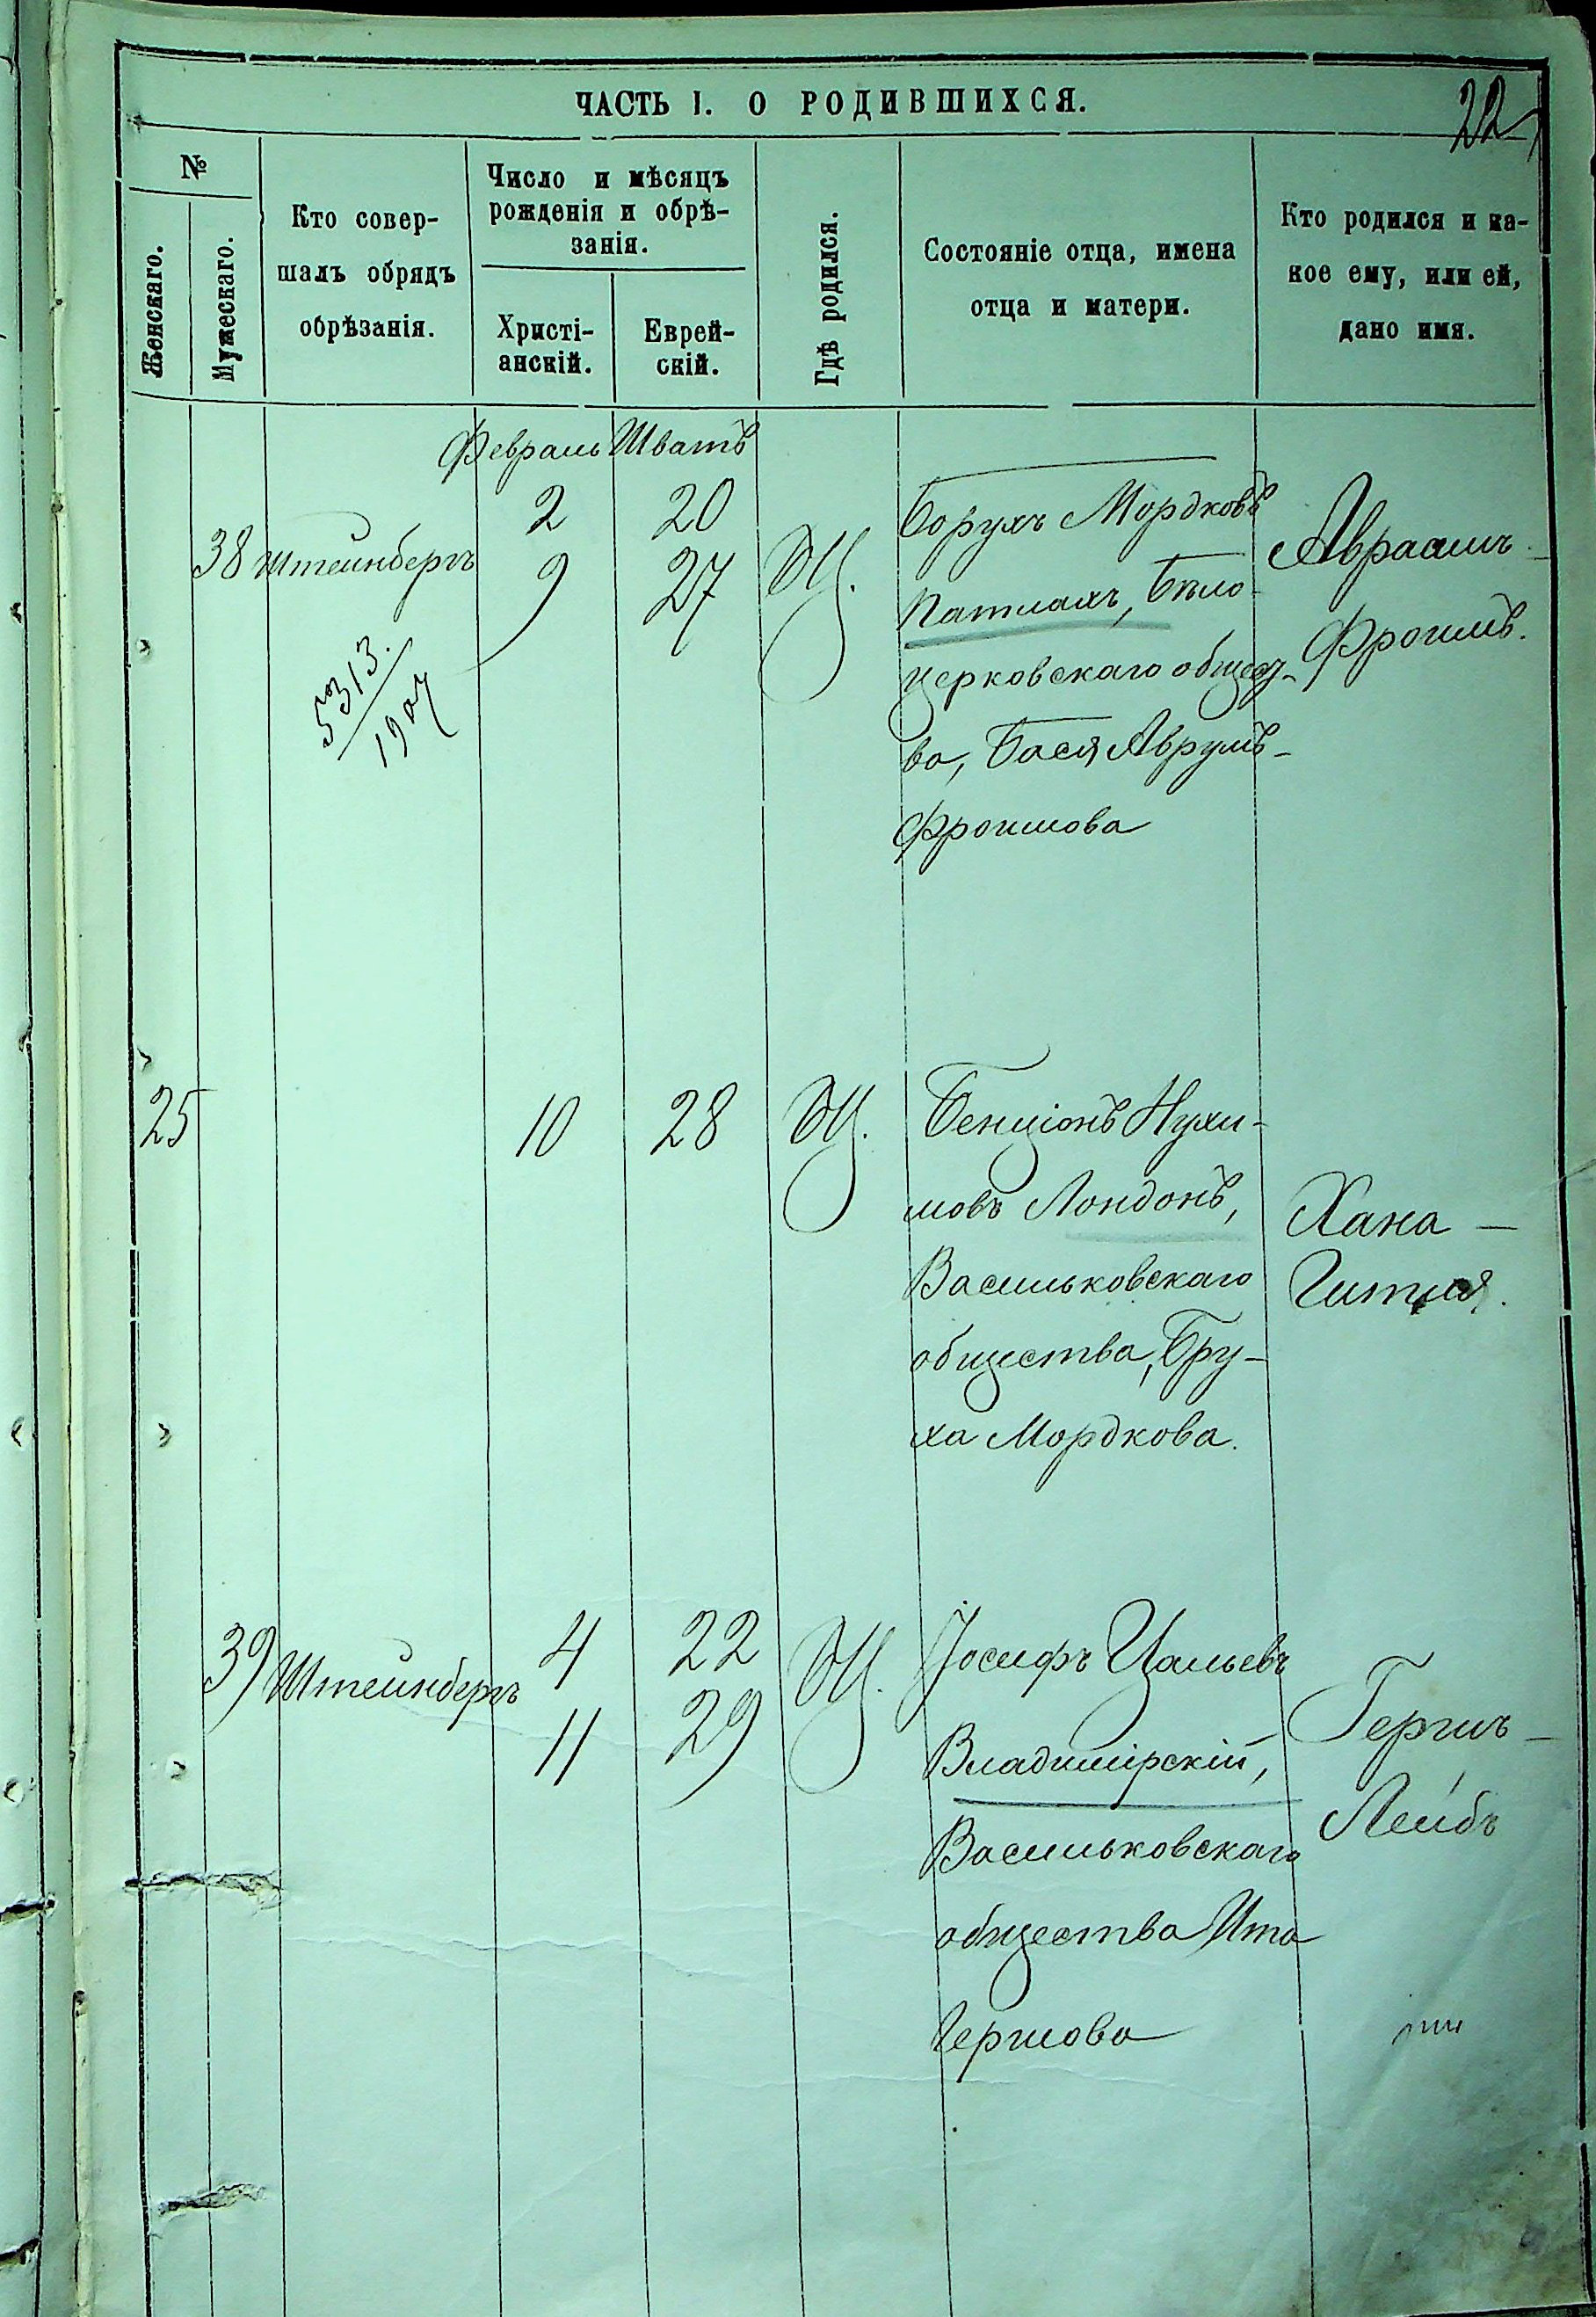 ЧАСТЬ I. О РОДИВШИХСЯ.
22
№
Женскаго.
Мужескаго.
Кто совер-
шалъ обрядъ
обрѣзанія.
Число и мѣсяцъ
рожденія и обрѣ-
занія.
Христі-
анскій.
Еврей-
скій.
Гдѣ родился.
Состояніе отца, имена
отца и матери.
Кто родился и ка-
кое ему, или ей,
дано имя.
Февраль Шватъ
38 Штейнбергъ
2 20
9 27
5313.
1907
Борухъ Мордковъ
Патлахъ, Бѣло-
церковскаго общест-
ва, Бася Аврумъ-
Фроимова
Авраамъ-
Фроимъ.
25
10 28
Бенціонъ Нухи-
мовъ Лондонъ,
Васильковскаго
общества, Бру-
ха Мордкова.
Хана -
Гитля.
39 Штейнбергъ
4 22
11 29
Іосифъ Цальевъ
Владимірскій,
Васильковскаго
общества Ита
Гершова
Гершъ-
Лейбъ